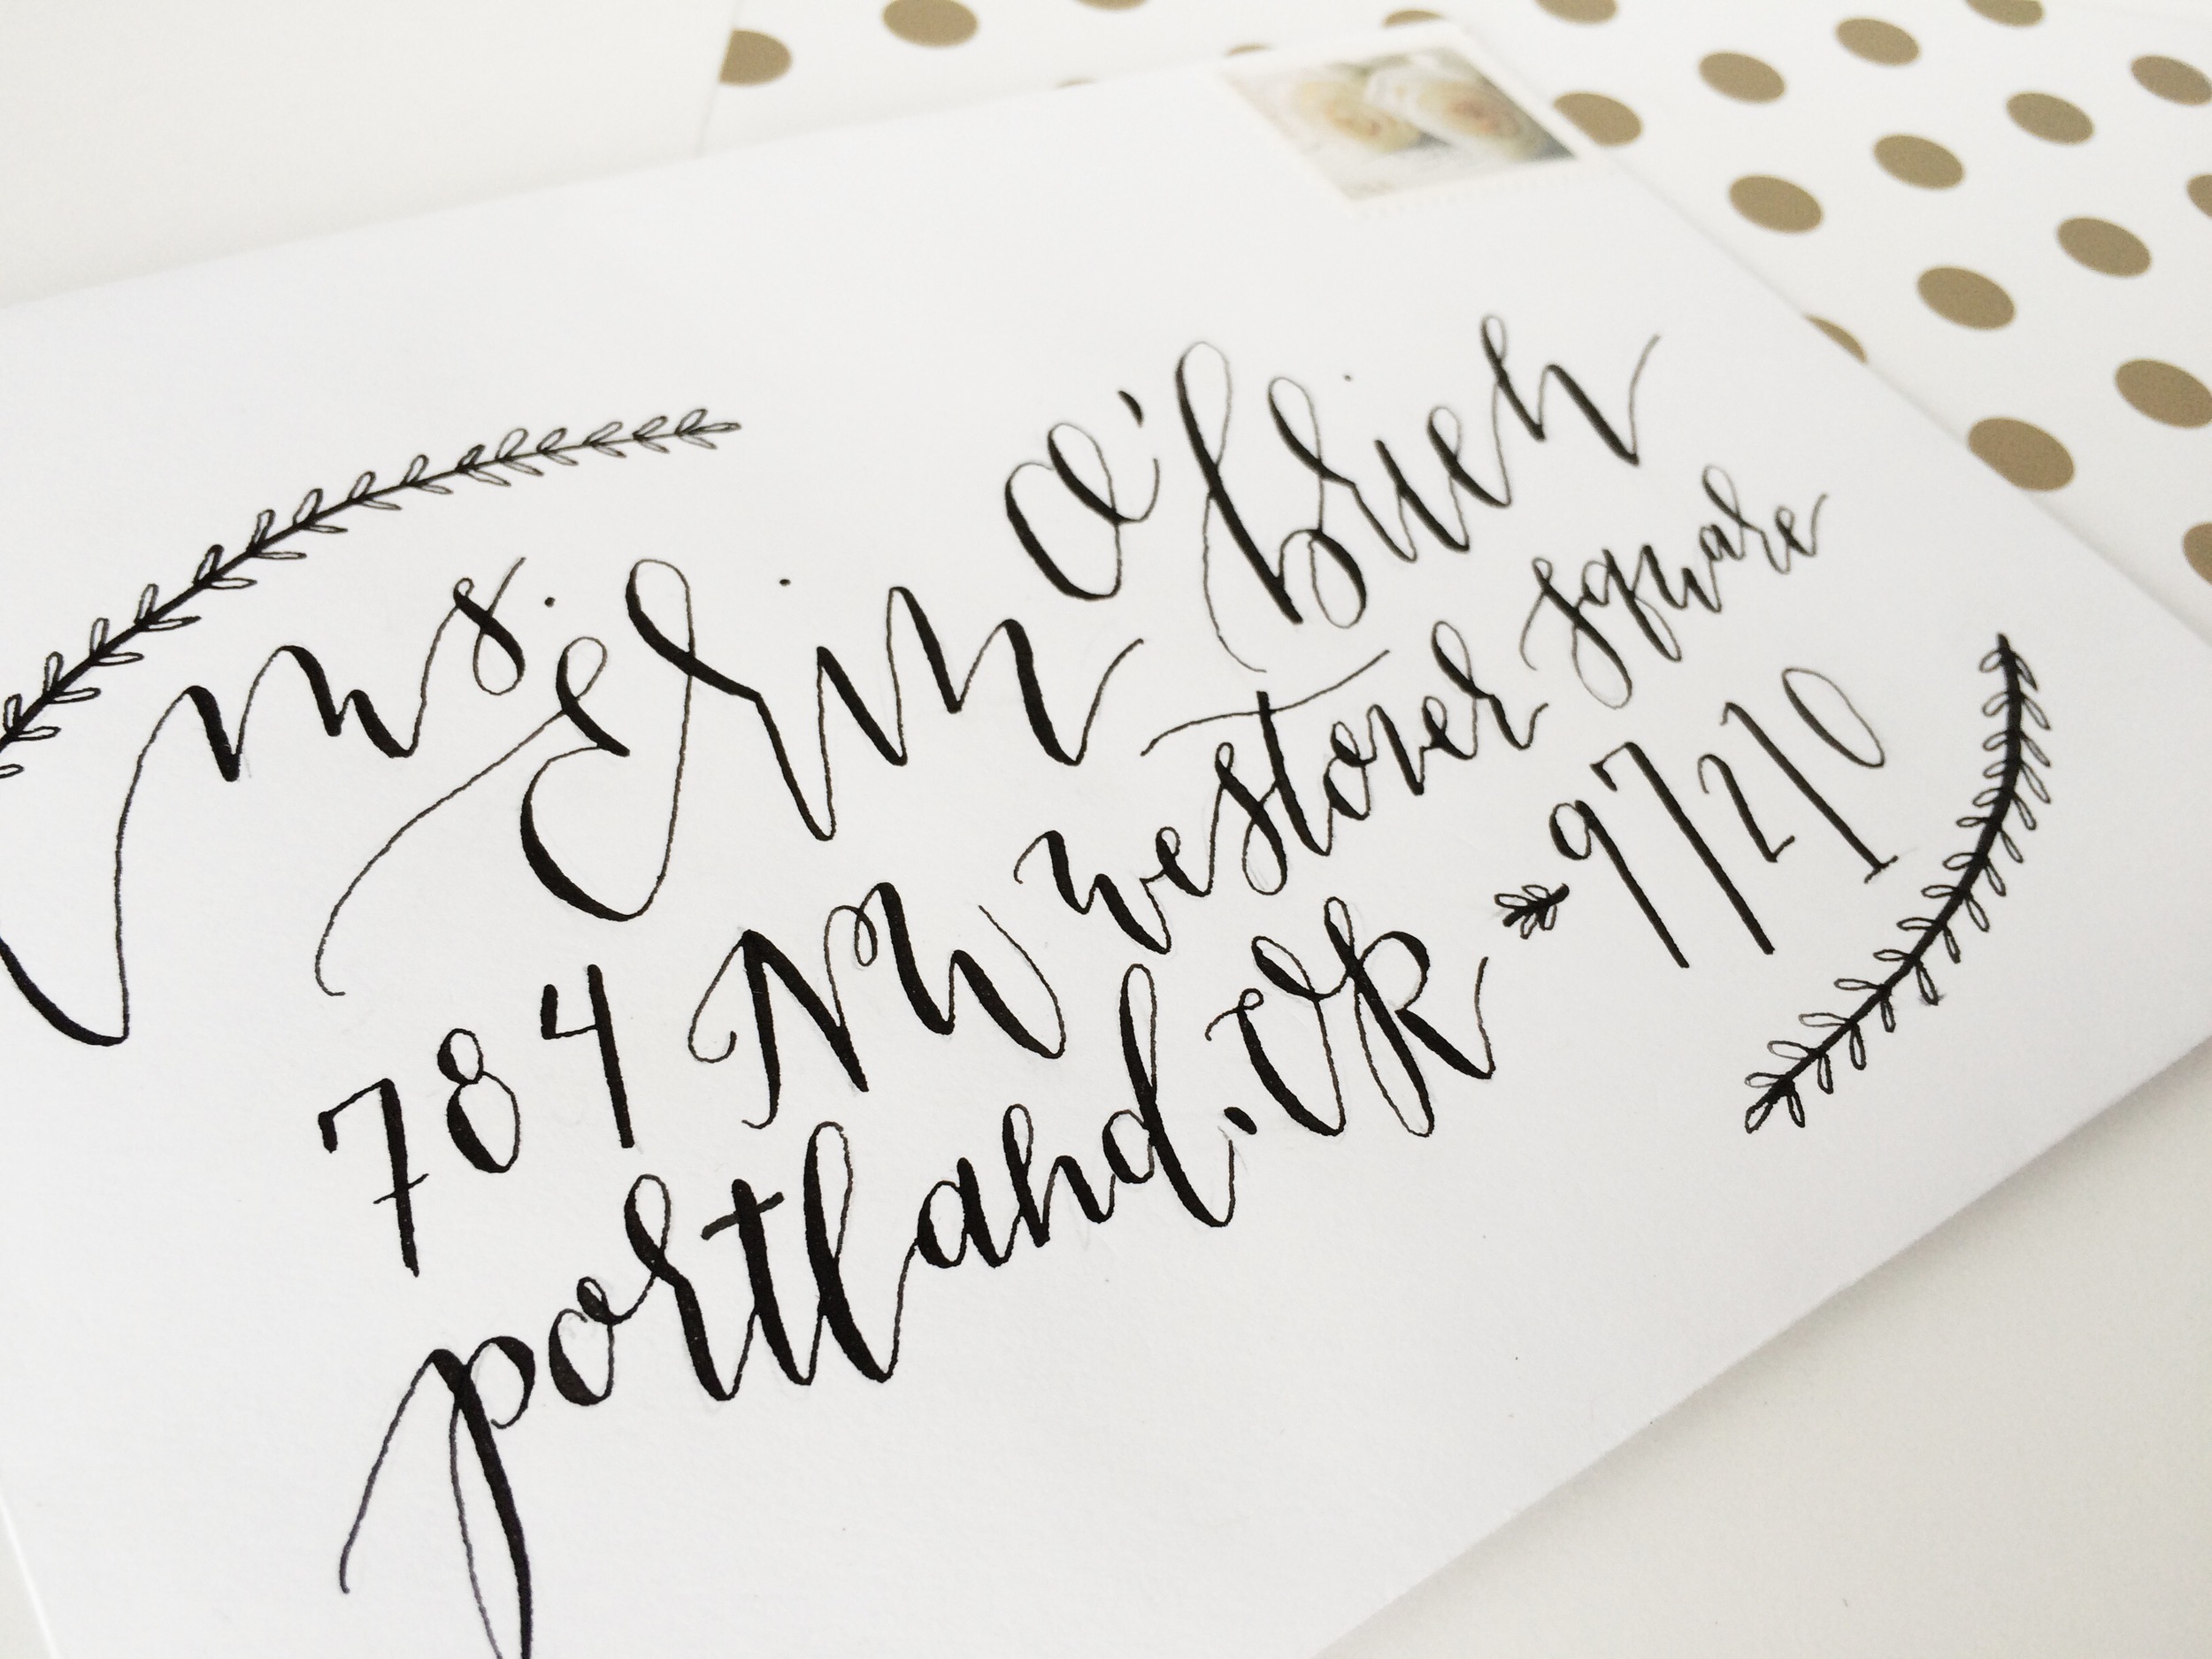 ms. Erin O'Brien
784 NW westover square
portland, OR 97210